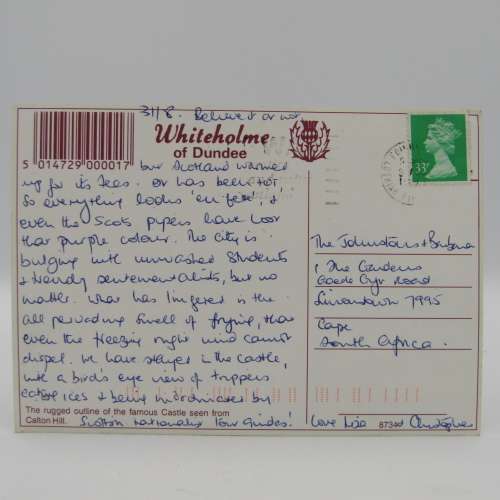 31/8. Believe it or not
Whiteholme
of Dundee
5 014729 000017
but Scotland warmed
up for its fees. Or has been HOT
So everything looks 'en fete', &
even the Scots pipers have lost
that purple colour. The city is
bulging with unwashed students
& trendy sentementalists, but no
matter. What has lingered is the
all pervading smell of frying, that
even the freezing night wind cannot
dispel. We have stayed in the castle,
with a bird's eye view of trippers
eating ices & being indoctrinated by
The rugged outline of the famous Castle seen from
Calton Hill.
Scottish nationalist tour guides!
Love Lisa Christopher
33
The Johnstons & Barbara
1 The Gardens
Road
7995
Cape
South Africa.